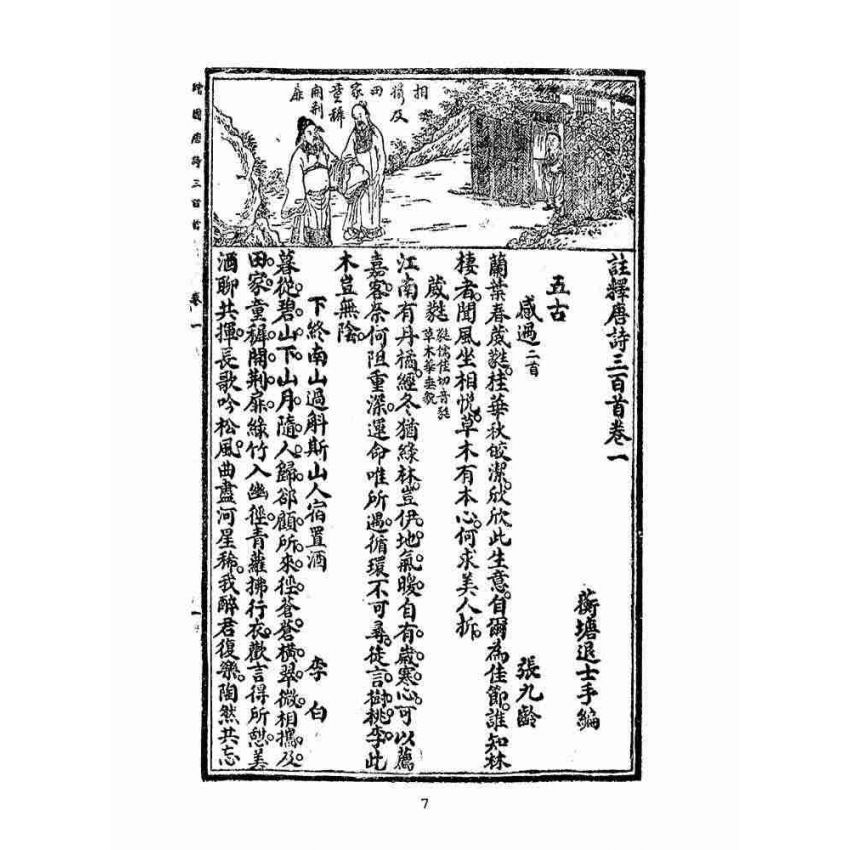 相攜及
田家
童稚
開荆
扉
繪圖唐詩三百首 卷一 一
註釋唐詩三百首卷一
蘅塘退士手編
五古
感遇二首 張九齡
蘭葉春葳蕤。桂華秋皎潔。欣欣此生意。自爾為佳節。誰知林
棲者。聞風坐相悅。草木有本心。何求美人折。
葳蕤 蕤儒隹切音甤
草木華垂貌
江南有丹橘。經冬猶綠林。豈伊地氣暖。自有歲寒心。可以薦
嘉客。奈何阻重深。運命唯所遇。循環不可尋。徒言樹桃李。此
木豈無陰。
下終南山過斛斯山人宿置酒 李白
暮從碧山下。山月隨人歸。卻顧所來徑。蒼蒼橫翠微。相攜及
田家。童稚開荆扉。綠竹入幽徑。青蘿拂行衣。歡言得所憩。美
酒聊共揮。長歌吟松風。曲盡河星稀。我醉君復樂。陶然共忘
7